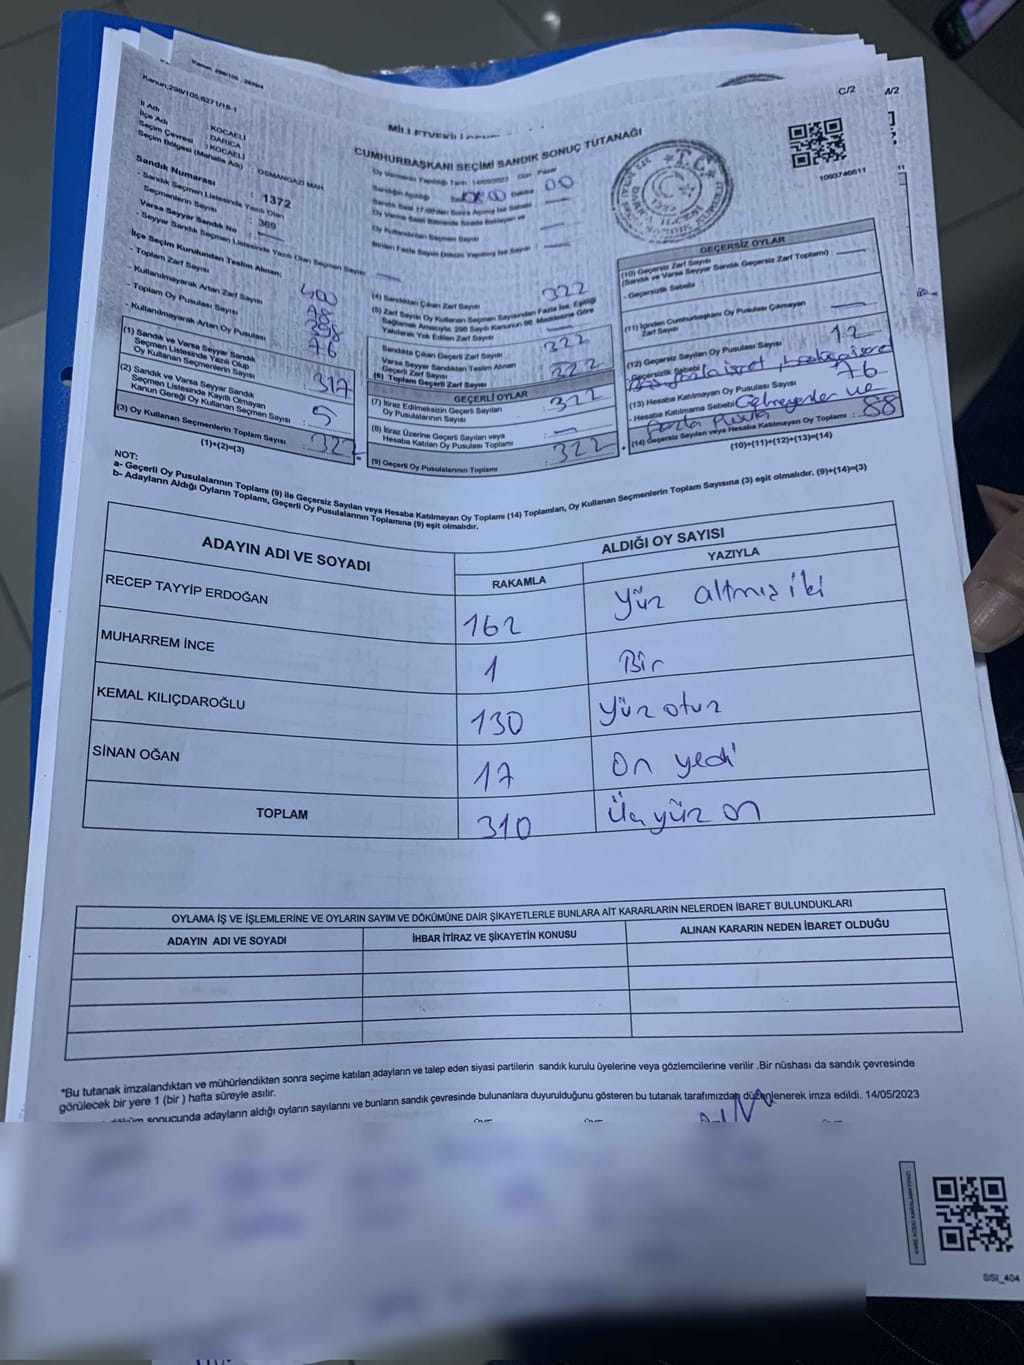 Kanun:298/105;6271/16-1
C/2
İl Adı : KOCAELİ
İlçe Adı : DARICA
Seçim Çevresi : KOCAELİ
Seçim Bölgesi (Mahalle Adı) : OSMANGAZİ MAH.
CUMHURBAŞKANI SEÇİMİ SANDIK SONUÇ TUTANAĞI
1093746611
Sandık Numarası : 1372
- Sandık Seçmen Listesinde Yazılı Olan
Seçmenlerin Sayısı : 369
Varsa Seyyar Sandık No
- Seyyar Sandık Seçmen Listesinde Yazılı Olan Seçmen Sayısı
İlçe Seçim Kurulundan Teslim Alınan;
- Toplam Zarf Sayısı 400
- Kullanılmayarak Artan Zarf Sayısı 78
- Toplam Oy Pusulası Sayısı 398
- Kullanılmayarak Artan Oy Pusulası 76
(1) Sandık ve Varsa Seyyar Sandık
Seçmen Listesinde Yazılı Olup
Oy Kullanan Seçmenlerin Sayısı 317
(2) Sandık ve Varsa Seyyar Sandık
Seçmen Listesinde Kayıtlı Olmayan
Kanun Gereği Oy Kullanan Seçmen Sayısı : 5
(3) Oy Kullanan Seçmenlerin Toplam Sayısı : 322
(1)+(2)=(3)
(4) Sandıktan Çıkan Zarf Sayısı 322
(5) Zarf Sayısı Oy Kullanan Seçmen Sayısından Fazla İse, Eşitliği
Sağlamak Amacıyla, 298 Sayılı Kanunun 98. Maddesine Göre
Yakılarak Yok Edilen Zarf Sayısı
Sandıkta Çıkan Geçerli Zarf Sayısı 322
Varsa Seyyar Sandıktan Teslim Alınan
Geçerli Zarf Sayısı
(6) Toplam Geçerli Zarf Sayısı 322
GEÇERLİ OYLAR
(7) İtiraz Edilmeksizin Geçerli Sayılan
Oy Pusulalarının Sayısı : 322
(8) İtiraz Üzerine Geçerli Sayılan veya
Hesaba Katılan Oy Pusulası Toplamı :
(9) Geçerli Oy Pusulalarının Toplamı : 322
GEÇERSİZ OYLAR
(10) Geçersiz Zarf Sayısı
(Sandık ve Varsa Seyyar Sandık Geçersiz Zarf Toplamı) :
- Geçersizlik Sebebi
(11) İçinden Cumhurbaşkanı Oy Pusulası Çıkmayan
Zarf Sayısı
(12) Geçersiz Sayılan Oy Pusulası Sayısı : 12
- Geçersizlik Sebebi
(13) Hesaba Katılmayan Oy Pusulası Sayısı 76
- Hesaba Katılmama Sebebi Gelmeyenler ve
fazla Pusula
(14) Geçersiz Sayılan veya Hesaba Katılmayan Oy Toplamı : 88
(10)+(11)+(12)+(13)=(14)
NOT:
a- Geçerli Oy Pusulalarının Toplamı (9) ile Geçersiz Sayılan veya Hesaba Katılmayan Oy Toplamı (14) Toplamları, Oy Kullanan Seçmenlerin Toplam Sayısına (3) eşit olmalıdır. (9)+(14)=(3)
b- Adayların Aldığı Oyların Toplamı, Geçerli Oy Pusulalarının Toplamına (9) eşit olmalıdır.
ADAYIN ADI VE SOYADI
ALDIĞI OY SAYISI
RAKAMLA
YAZIYLA
RECEP TAYYİP ERDOĞAN 162 Yüz altmış iki
MUHARREM İNCE 1 Bir
KEMAL KILIÇDAROĞLU 130 Yüz otuz
SİNAN OĞAN 17 On yedi
TOPLAM 310 Üçyüz on
OYLAMA İŞ VE İŞLEMLERİNE VE OYLARIN SAYIM VE DÖKÜMÜNE DAİR ŞİKAYETLERLE BUNLARA AİT KARARLARIN NELERDEN İBARET BULUNDUKLARI
ADAYIN ADI VE SOYADI
İHBAR İTİRAZ VE ŞİKAYETİN KONUSU
ALINAN KARARIN NEDEN İBARET OLDUĞU
*Bu tutanak imzalandıktan ve mühürlendikten sonra seçime katılan adayların ve talep eden siyasi partilerin sandık kurulu üyelerine veya gözlemcilerine verilir .Bir nüshası da sandık çevresinde
görülecek bir yere 1 (bir ) hafta süreyle asılır.
sonucunda adayların aldığı oyların sayılarını ve bunların sandık çevresinde bulunanlara duyurulduğunu gösteren bu tutanak tarafımızdan düzenlenerek imza edildi. 14/05/2023
SSI_404